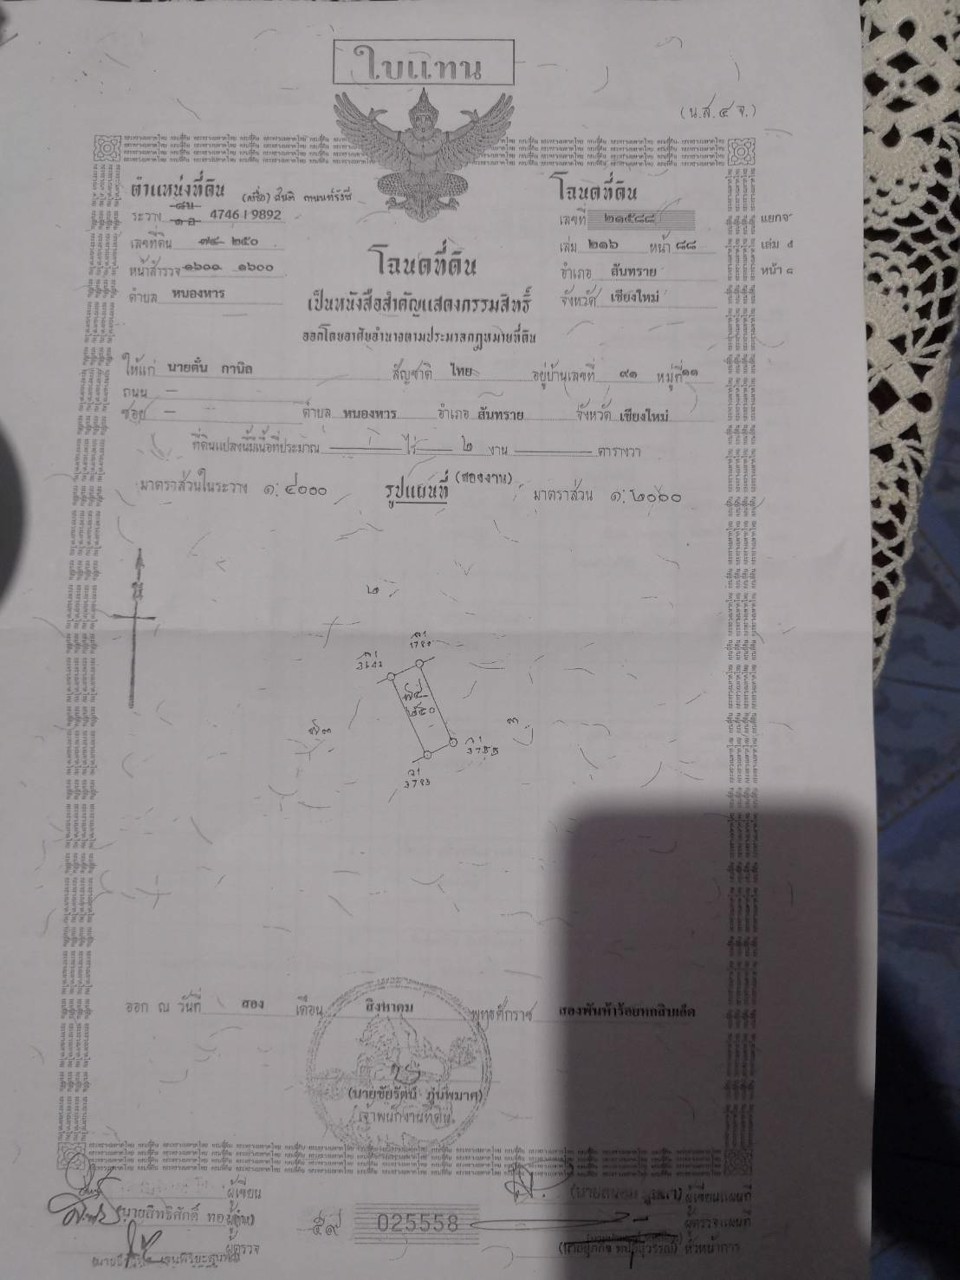 ใบแทน
(น.ส.๔ จ.)
ตำแหน่งที่ดิน
โฉนดที่ดิน
ระวาง 4746 I 9892
เลขที่ ๒๑๕๘๘
แยกจ
เลขที่ดิน ๗๔ ๒๕๐
เล่ม ๒๑๖ หน้า ๘๘
เล่ม
หน้าสำรวจ ๑๖๐๐ ๑๖๐๐
โฉนดที่ดิน
อำเภอ สันทราย
หน้า
ตำบล หนองหาร
เป็นหนังสือสำคัญแสดงกรรมสิทธิ์
จังหวัด เชียงใหม่
ออกโดยอาศัยอำนาจตามประมวลกฎหมายที่ดิน
ให้แก่ นายตั๋น กานิล สัญชาติ ไทย อยู่บ้านเลขที่ ๙๑ หมู่ที่ ๑๑
ถนน —
ซอย — ตำบล หนองหาร อำเภอ สันทราย จังหวัด เชียงใหม่
ที่ดินแปลงนี้มีเนื้อที่ประมาณ ไร่ ๒ งาน ตารางวา
(สองงาน)
มาตราส่วนในระวาง ๑:๔๐๐๐ รูปแผนที่ มาตราส่วน ๑:๒๐๐๐
น
๒
๗๔
๒๕๐
๗๓
๓
ออก ณ วันที่ สอง เดือน สิงหาคม พุทธศักราช สองพันห้าร้อยหกสิบเอ็ด
เจ้าพนักงานที่ดิน
ผู้เขียน
ผู้เขียนแผนที่
(นายสิทธิศักดิ์
๕๙ 025558
ผู้ตรวจแผนที่
ผู้ตรวจ
หัวหน้าการ